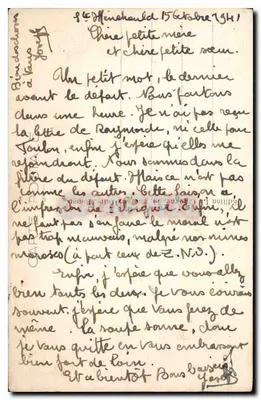 Ste Menehould 15 Octobre 1941
Chère petite mère
et chère petite sœur.
Un petit mot, le dernier
avant le départ. Nous partons
dans une heure. Je n'ai pas reçu
la lettre de Raymonde, ni celle pour
Toulon, enfin j'espère qu'elles me
rejoindront. Nous sommes dans la
fièvre du départ. Mais ce n'est pas
comme les autres; cette fois, on a
l'impression de enfin, il
ne faut pas s'en faire le moral n'est
pas trop mauvais, malgré nos mines
moroses (à part ceux de Z.N.O.).
Enfin, j'espère que vous allez
bien toutes les deux. Je vous écrivais
souvent. j'espère que vous ferez de
même. La soupe sonne, donc
je vous quitte en vous embrassant
bien fort de loin.
Et à bientôt Bons baisers
Joseph
à vous
Joseph